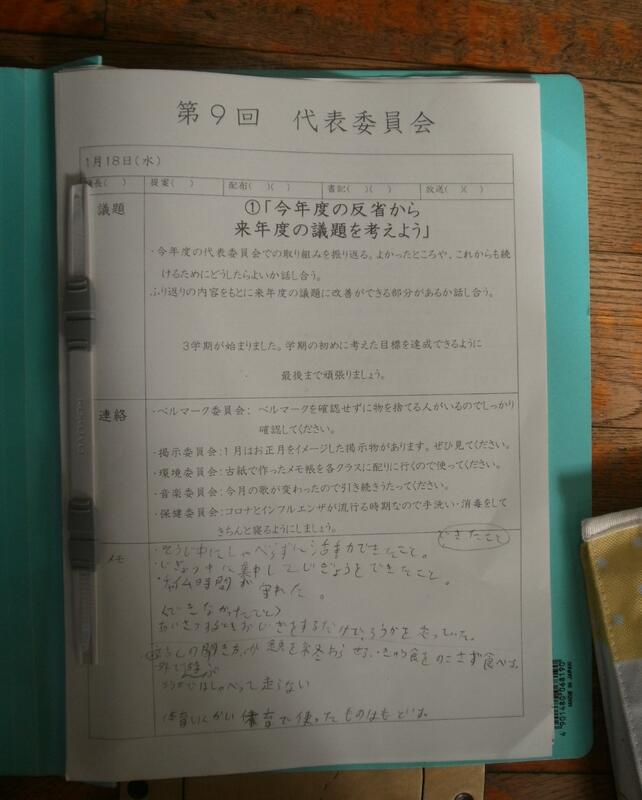 第9回 代表委員会
1月18日(水)
議長( ) 提案( ) 配布( )( ) 書記( )( ) 放送( )( )
議題
①「今年度の反省から
来年度の議題を考えよう」
・今年度の代表委員会での取り組みを振り返る。よかったところや、これからも続
けるためにどうしたらよいか話し合う。
ふり返りの内容をもとに来年度の議題に改善ができる部分があるか話し合う。
3学期が始まりました。学期の初めに考えた目標を達成できるように
最後まで頑張りましょう。
連絡
・ベルマーク委員会: ベルマークを確認せずに物を捨てる人がいるのでしっかり
確認してください。
・掲示委員会:1月はお正月をイメージした掲示物があります。ぜひ見てください。
・環境委員会:古紙で作ったメモ帳を各クラスに配りに行くので使ってください。
・音楽委員会:今月の歌が変わったので引き続きうたってください。
・保健委員会:コロナとインフルエンザが流行る時期なので手洗い・消毒をして
きちんと寝るようにしましょう。
メモ
できたこと
・そうじ中にしゃべらずに活動ができたこと。
・じぎょう中に集中してじぎょうをできたこと。
・チャイム時間が守れた。
(できなかったこと)
あいさつするときおじぎをするだけで、ろうかを走っていた。
の聞き方、きゅう食をのこさず食べる
外で遊ぶ
ろうかではしゃべって走らない
体育で使ったものはもどす
KOKUYO
4 901480 068190
MADE IN JAPAN